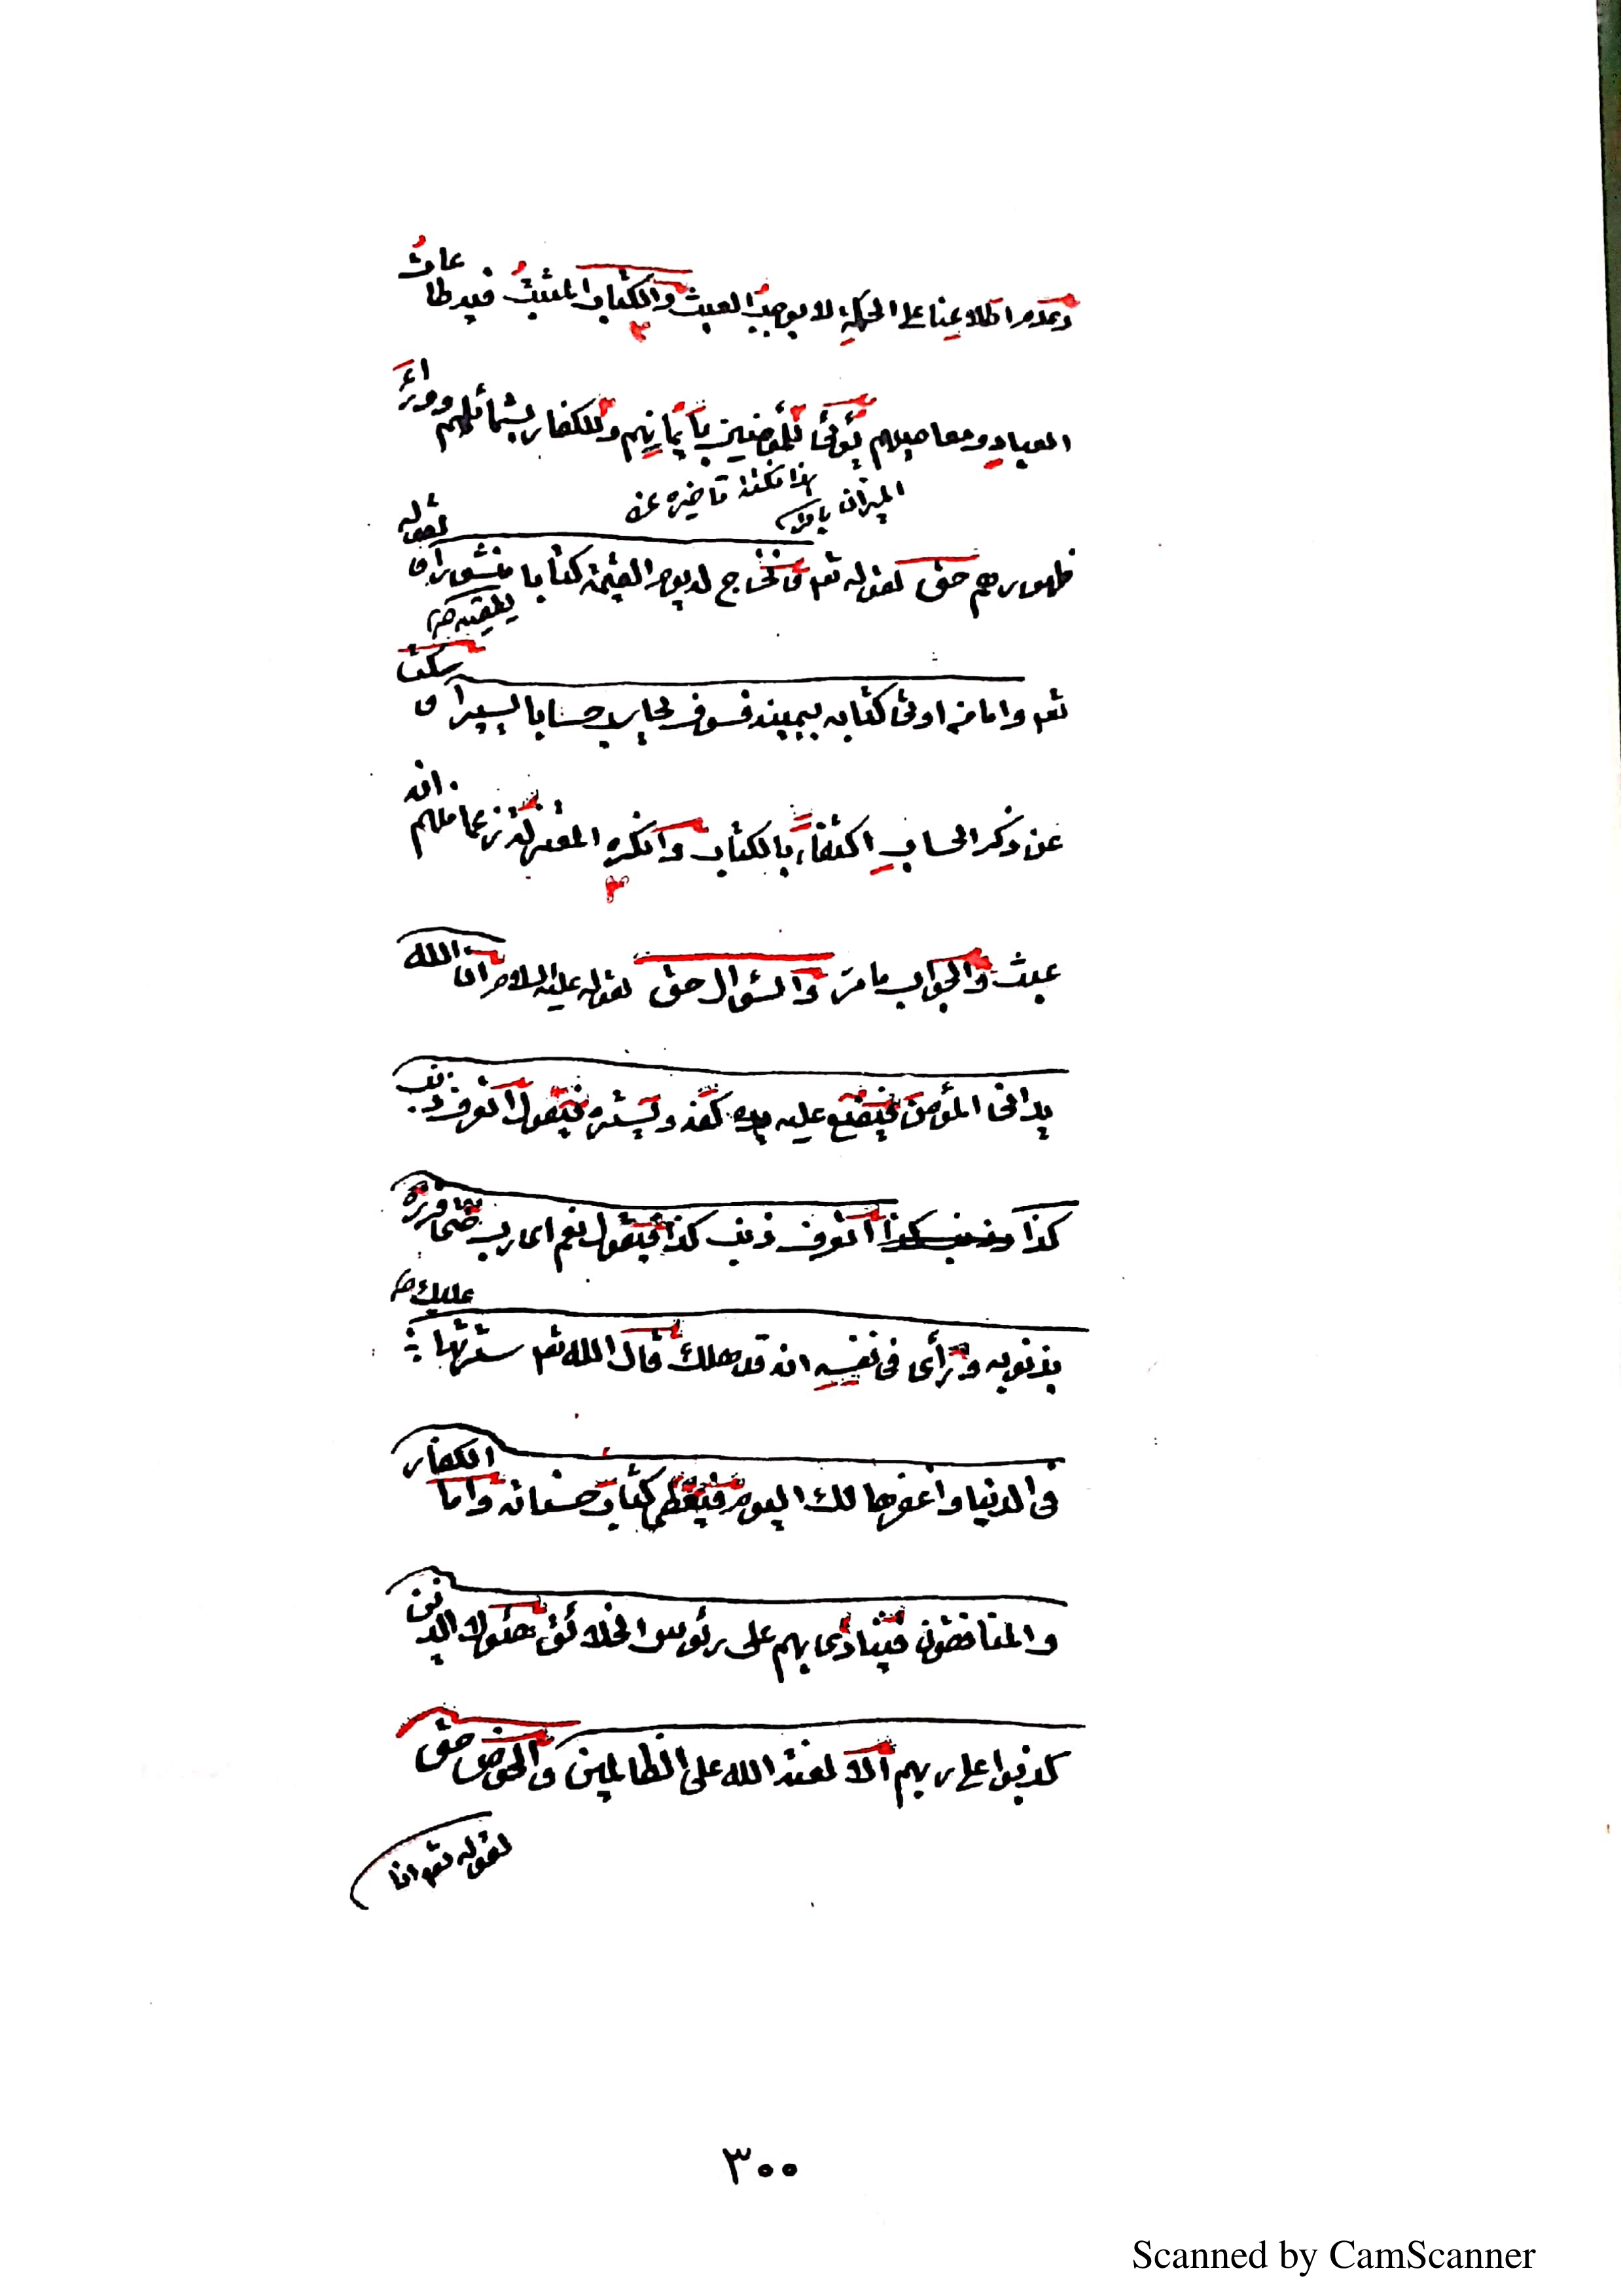 وعدم اطلاعنا على الحكمة لا يوجب العبث والكتاب المثبت فيه طاعات
العباد ومعاصيهم يؤتى للمؤمنين بايمانهم وللكفار بشمائلهم ووراء
هذا نكتة تأخيره عن
الميزان
ظهورهم حق لقوله تعـ ونخرج له يوم القيمة كتابا منشورا و لقوله
يلقيه
تعـ واما من اوتى كتابه بيمينه فسوف يحاسب حسابا يسيرا و سكت
عن ذكر الحساب اكتفاء بالكتاب وانكره المعتزلة زعما منهم انه
عبث والجواب ما مر والسؤال حق لقوله عليه السلام ان الله
يدنى المؤمن فيضع عليه كنفه ويستره فيقول اتعرف ذنب
كذا اتعرف ذنب كذا فيقول نعم اى رب حتى قرره
بذنوبه ورأى فى نفسه انه قد هلك قال الله تعـ سترتها
عليك
فى الدنيا وانا اغفرها لك اليوم فيعطى كتاب حسناته واما الكفار
والمنافقون فينادى بهم على رئوس الخلائق هئولاء الذين
كذبوا على ربهم الا لعنة الله على الظالمين والحوض حق
لقوله تعـ انا
٣٠٠
Scanned by CamScanner